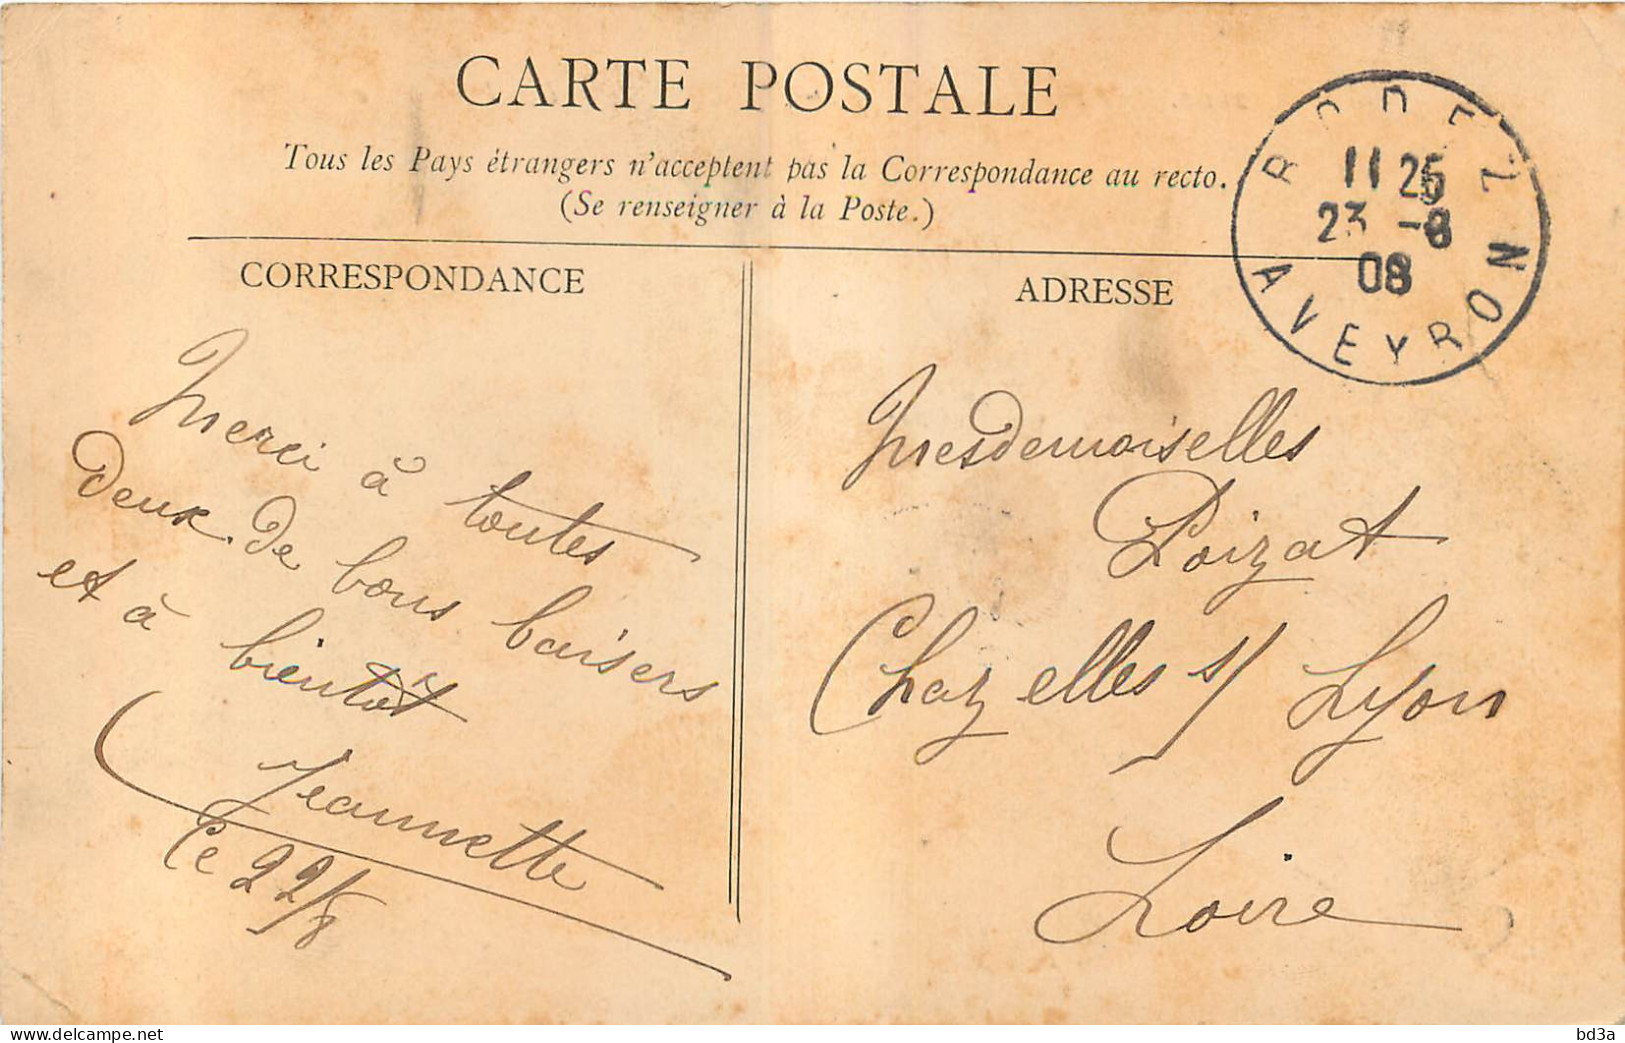 CARTE POSTALE
Tous les Pays étrangers n'acceptent pas la Correspondance au recto.
(Se renseigner à la Poste.)
CORRESPONDANCE
ADRESSE
RODEZ
11 25
23 -8
08
AVEYRON
Merci à toutes
deux de bons baisers
et à bientôt
Jeannette
Ce 22/8
Mesdemoiselles
Poizat
Chazelles s/ Lyon
Loire
bd3a